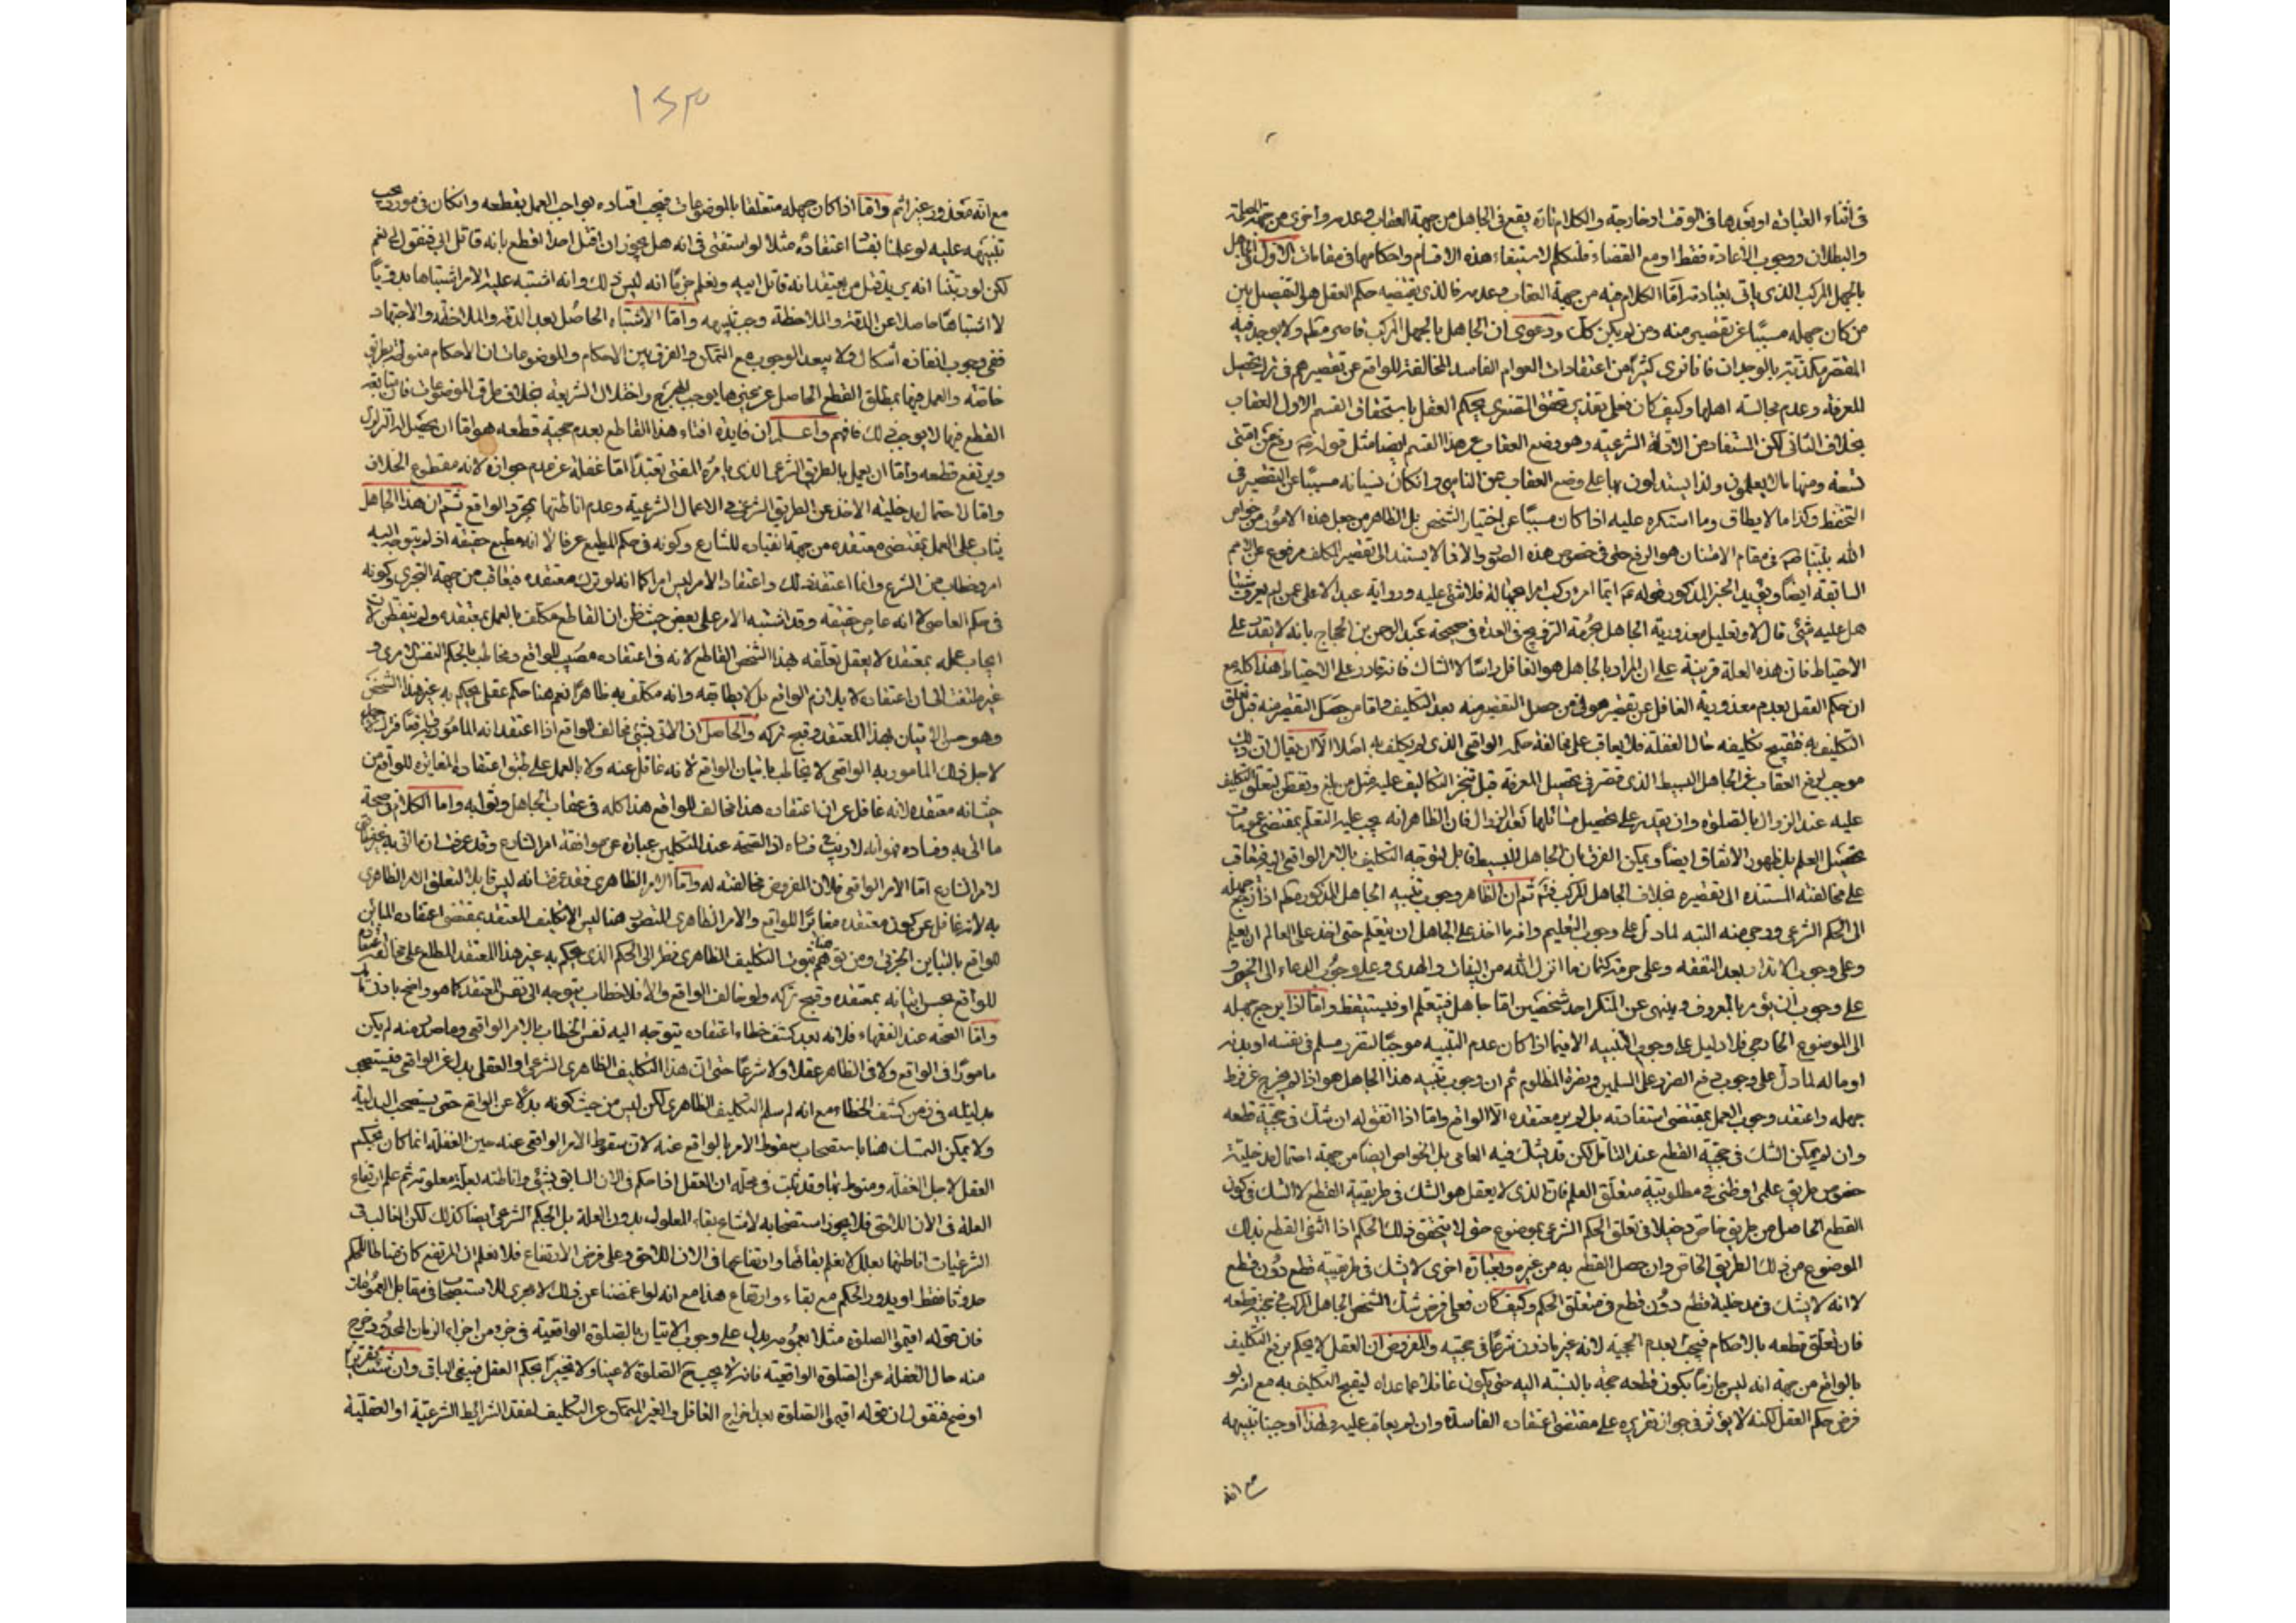 في اثناء العبادة او بعدها في الوقت او خارجه والكلام تارة يقع في الجاهل من جهة العقاب وعدمه واخرى من جهة الصحة
والبطلان ووجوب الاعادة فقط او مع القضاء فلنتكلم لاستيفاء هذه الاقسام واحكامها في مقامات الاول في الجاهل
بالجهل المركب الذي ياتي بعبادته امّا الكلام فيه من جهة العقاب وعدمه فالذي يقتضيه حكم العقل هو التفصيل بين
من كان جهله مسببّا عن تقصير منه ومن لم يكن كذلك ودعوى ان الجاهل بالجهل المركب قاصر مطلقا ولا يوجد فيه
المقصر مكذبة بالوجدان فانا نرى كثيرا من اعتقادات العوام الفاسدة المخالفة للواقع عن تقصيرهم في ترك تحصيل
المعرفة وعدم مجالسة اهلها وكيف كان فعلى تقدير تحقق المقصر يحكم العقل باستحقاق القسم الاول العقاب
بخلاف الثاني لكن المستفاد من الادلة الشرعية وهو رفع العقاب عن هذا القسم ايضا مثل قوله رفع عن امتي
تسعة ومنها ما لا يعلمون ولذا يستدلون بها على رفع العقاب عن الناسي وان كان نسيانه مسببّا عن التقصير في
التحفظ وكذا ما لا يطاق وما استكره عليه اذا كان مسببّا عن اختيار الشخص بل الظاهر من جعل هذه الامور من خواص
الله بنبينا في مقام الامتنان هو الرفع حتى في خصوص هذه الصورة والا فما لا يستند الى تقصير المكلف مرفوع عن الامم
السابقة ايضا ويؤيد الخبر المذكور قوله ايّما امرء ركب امرا بجهالة فلا شئ عليه ورواية عبد الاعلى عمن لم يعرف شيئا
هل عليه شئ قال لا وتعليل معذورية الجاهل بحرمة التزويج في العدة في صحيحة عبد الرحمن بن الحجاج بانه لا يقدر على
الاحتياط فان هذه العلة قرينة على ان المراد بالجاهل هو الغافل راسًا لا الشاك فانه قادر على الاحتياط هذا كله مع
ان حكم العقل بعدم معذورية الغافل عن تقصير هو في من حصل التقصير منه بعد التكليف واما من حصل التقصير منه قبل تعلق
التكليف به فيقبح تكليفه حال الغفلة فلا يعاقب على مخالفة حكمه الواقعي الذي لم يكلف به اصلا الا ان يقال ان ذلك
موجب لرفع العقاب عن الجاهل البسيط الذي قصر في تحصيل المعرفة قبل تنجز التكاليف عليه مثل من بلغ وتفطن لتعلق التكليف
عليه عند الزوال بالصلوة وان يقدر على تحصيل مسائلها بعد الزوال فان الظاهر انه يجب عليه التعلم بمقتضى عمومات
تحصيل العلم بل ظهور الاتفاق ايضا ويمكن الفرق بان الجاهل البسيط قابل لتوجه التكليف بالامر الواقعي اليه فيعاقب
على مخالفته المستندة الى تقصيره بخلاف الجاهل المركب فتم ثم ان الظاهر وجوب تنبيه الجاهل المذكور اذا رجع جهله
الى الحكم الشرعي ورجي منه التنبه لما دل على وجوب التعليم وانه ما اخذ على الجاهل ان يتعلم حتى اخذ على العالم ان يعلم
وعلى وجوب الانذار بعد التفقه وعلى حرمة كتمان ما انزل الله من البينات والهدى وعلى وجوب الدعاء الى الخير و
على وجوب ان يؤمر بالمعروف وينهى عن المنكر احد شخصين اما جاهل فيتعلم او فيستيقظ واما اذا رجع جهله
الى الموضوع الخارجي فلا دليل على وجوب التنبيه الا فيما اذا كان عدم التنبيه موجبا لتضرر مسلم في نفسه او بدنه
او ماله لما دل على وجوب دفع الضرر على المسلمين ونصرة المظلوم ثم ان وجوب تنبيه هذا الجاهل هو اذا لم يخرج عن فرط
جهله واعتقد وجوب العمل بمقتضى استفادته بل لم ير معتقده الا الواقع واما اذا اتفق له ان شك في حجية قطعه
وان لم يمكن الشك في حجية القطع عند التامل لكن قد يشك فيه العامي بل الخواص ايضا من جهة احتمال مدخلية
خصوص طريق علمي او ظني في مطلوبية متعلق العلم فان الذي لا يعقل هو الشك في طريقية القطع لا الشك في كون
القطع الحاصل من طريق خاص دخيلا في تعلق الحكم الشرعي بموضوع حتى لا يتحقق ذلك الحكم اذا انتفى القطع بذلك
الموضوع من ذلك الطريق الخاص وان حصل القطع به من غيره وبعبارة اخرى لا يشك في طريقية قطع دون قطع
لا انه لا يشك في مدخلية قطع دون قطع في متعلق الحكم وكيف كان فعلى فرض شك الشخص الجاهل المركب في حجية قطعه
فان تعلق قطعه بالاحكام فيجب بعدم الحجية لانه غير ماذون شرعا في حجيته والمفروض ان العقل لا يحكم برفع التكليف
بالواقع من جهة انه ليس جازما بكون قطعه حجة بالنسبة اليه حتى يكون غافلا عما عداه ليقبح التكليف به مع انه لو
فرض حكم العقل لكنه لا يؤثر في جواز تقريره على مقتضى اعتقاده الفاسد وان لم يعاقب عليه ولهذا اوجبنا تنبيهه
مع انه
١٥٣
مع انه معذور غير اثم واما اذا كان جهله متعلقا بالموضوعات فيجب افتاؤه بواجب العمل بقطعه وان كان في مورد يجب
تنبيهه عليه لو علمنا بفساد اعتقاده مثلا لو استفتى في انه هل يجوز ان اقتل احدا اقطع بانه قاتل ابي فنقول له نعم
لكن لو رئينا انه يريد قتل من يعتقد انه قاتل ابيه ونعلم جزما انه ليس كذلك وانه اشتبه عليه الامر اشتباها بدويّا
لا اشتباها حاصلا عن الدقة والملاحظة وجب تنبيهه واما الاشتباه الحاصل بعد الدقة والملاحظة والاجتهاد
ففي وجوب انقاذه اشكال ولا يبعد الوجوب مع التمكن والفرق بين الاحكام والموضوعات ان الاحكام منوطة بطرق
خاصة والعمل فيها بمطلق القطع الحاصل عن يجئ هما يوجب الهرج واختلال الشريعة بخلاف طرق الموضوعات فان متابعة
القطع فيها لا يوجب ذلك فافهم واعلم ان فايدة افتاء هذا القاطع بعدم حجية قطعه هو اما ان يحصل له التزلزل
ويرتفع قطعه واما ان يعمل بالطريق الشرعي الذي يامره المفتي تعبّدا اما غفلة عن عدم جوازه لانه مقطوع الخلاف
واما لاحتمال مدخلية الاخذ عن الطريق الشرعي في الاعمال الشرعية وعدم اناطتها بمجرد الواقع ثم ان هذا الجاهل
يثاب على العمل بمقتضى معتقده من جهة انقياده للشارع وكونه في حكم المطيع عرفا لا انه مطيع حقيقة اذ لم يتوجه اليه
امر وخطاب من الشرع وانما اعتقد ذلك واعتقاد الامر ليس امرا كما انه لو ترك معتقده فيعاقب من جهة التجري وكونه
في حكم العاصي لا انه عاص حقيقة وقد اشتبه الامر على بعض حيث ظن ان القاطع مكلف بالعمل بمعتقده ولم يتفطن لان
ايجاب عمله بمعتقده لا يعقل تعلقه بهذا الشخص القاطع لانه في اعتقاده مصيب للواقع ومخاطب بالحكم النفس الامري و
غير ملتفت الى ان اعتقاده لا يلازم الواقع بل لا يطابقه وانه مكلف به ظاهرا نعم هنا حكم عقلي يحكم به غير هذا الشخص
وهو حسن الاتيان بهذا المعتقد وقبح تركه والحاصل ان الاتي بشئ مخالف للواقع اذا اعتقد انه المامور به واقعا فترك
لاجل ذلك المامور به الواقعي لا يخاطب باتيان الواقع لانه غافل عنه ولا بالعمل على طبق اعتقاده المغايرة للواقع من
حيث انه معتقده لانه غافل عن ان اعتقاده هذا مخالف للواقع هذا كله في عقاب الجاهل وثوابه واما الكلام في صحة
ما اتى به وفساده فهو انه لا ريب في فساده اذ الصحة عند المتكلمين عبارة عن موافقة امر الشارع وقد عرفت ان ما اتى به غير موافق
لامر الشارع اما الامر الواقعي فلان المفروض مخالفته له واما الامر الظاهري فقد عرفت انه ليس قابلا لتعلق الامر الظاهري
به لانه غافل عن كون معتقده مغايرا للواقع والامر الظاهري المتصور هنا ليس الا تكليف المعتقد بمقتضى اعتقاده المباين
للواقع بالتباين الجزئي ومن توهم هنا ثبوت التكليف الظاهري نظر الى الحكم الذي يحكم به غير هذا المعتقد المطلع على مخالفة اعتقاده
للواقع بحسن اتيانه بمعتقده وقبح تركه ولو خالف الواقع والا فلا خطاب يتوجه الى نفس المعتقد كما هو واضح بادنى تامل
واما الصحة عند الفقهاء فلانه بعد كشف خطاء اعتقاده يتوجه اليه نفس الخطاب بالامر الواقعي وما صدر منه لم يكن
مامورا في الواقع ولا في الظاهر عقلا ولا شرعا حتى ان هذا التكليف الظاهري الشرعي او العقلي بدل عن الواقعي فيستصحب
بدليته في زمن كشف الخطاء مع انه لم سلم التكليف الظاهري لكن ليس من حيث كونه بدلا عن الواقع حتى يستصحب البدلية
ولا يمكن التمسك هنا باستصحاب سقوط الامر بالواقع عنه لان سقوط الامر الواقعي عنه حين الغفلة انما كان بحكم
العقل لاجل الغفلة ومنوط بها وقد ثبت في محله ان العقل اذا حكم في الان السابق بشئ واناطته بعلة معلومة ثم علم ارتفاع
العلة في الان اللاحق فلا يجوز استصحابه لامتناع بقاء المعلول بدون العلة بل الحكم الشرعي ايضا كذلك لكن الغالب في
الشرعيات اناطتها بعلل لا نعلم بقائها وارتفاعها في الان اللاحق وعلى فرض الارتفاع فلا نعلم ان المرتفع كان مناطا للحكم
حدوثا فقط او يدور الحكم مع بقاء وارتفاع هذا مع انه لو اغمضنا عن ذلك لا مجرى للاستصحاب في مقابل العمومات
فان قوله اقيموا الصلوة مثلا بعمومه يدل على وجوب الاتيان بالصلوة الواقعية في جزء من اجزاء الزمان المحدود خرج
منه حال الغفلة عن الصلوة الواقعية فانه لا يجب الصلوة لا عينا ولا تخييرا بحكم العقل فيبقى الباقي وان شئت تقريرا
اوضح فنقول ان قوله اقيموا الصلوة بعد اخراج الغافل والغير المتمكن عن التكليف لفقد الشرائط الشرعية او العقلية